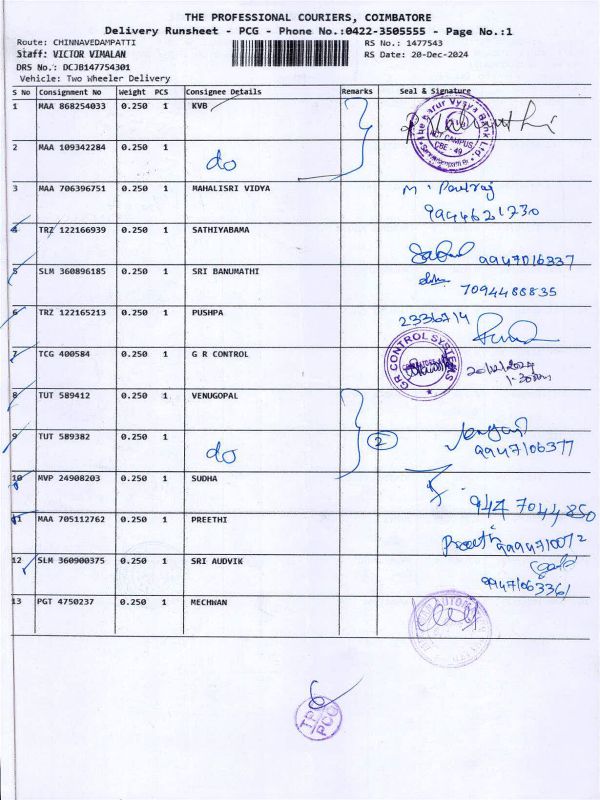 THE PROFESSIONAL COURIERS, COIMBATORE
Delivery Runsheet - PCG - Phone No.:0422-3505555 - Page No.:1
Route: CHINNAVEDAMPATTI RS No.: 1477543
Staff: VICTOR VIMALAN RS Date: 20-Dec-2024
DRS No.: DCJB147754301
Vehicle: Two Wheeler Delivery
S No Consignment No Weight PCS Consignee Details Remarks Seal & Signature
1 MAA 868254033 0.250 1 KVB
2 MAA 109342284 0.250 1 do
3 MAA 706396751 0.250 1 MAHALISRI VIDYA M. Paulraj
9944621730
4 TRZ 122166939 0.250 1 SATHIYABAMA 9947016337
5 SLM 360896185 0.250 1 SRI BANUMATHI 7094488835
6 TRZ 122165213 0.250 1 PUSHPA 23367/14
7 TCG 400584 0.250 1 G R CONTROL GR CONTROL SYSTEMS 20/12/2024
1.30pm
8 TUT 589412 0.250 1 VENUGOPAL
9 TUT 589382 0.250 1 do 2 9947106377
10 MVP 24908203 0.250 1 SUDHA 947 7044850
11 MAA 705112762 0.250 1 PREETHI Preethi 9994710072
12 SLM 360900375 0.250 1 SRI AUDVIK 9947106336/
13 PGT 4750237 0.250 1 MECHWAN
6
TP
PCG